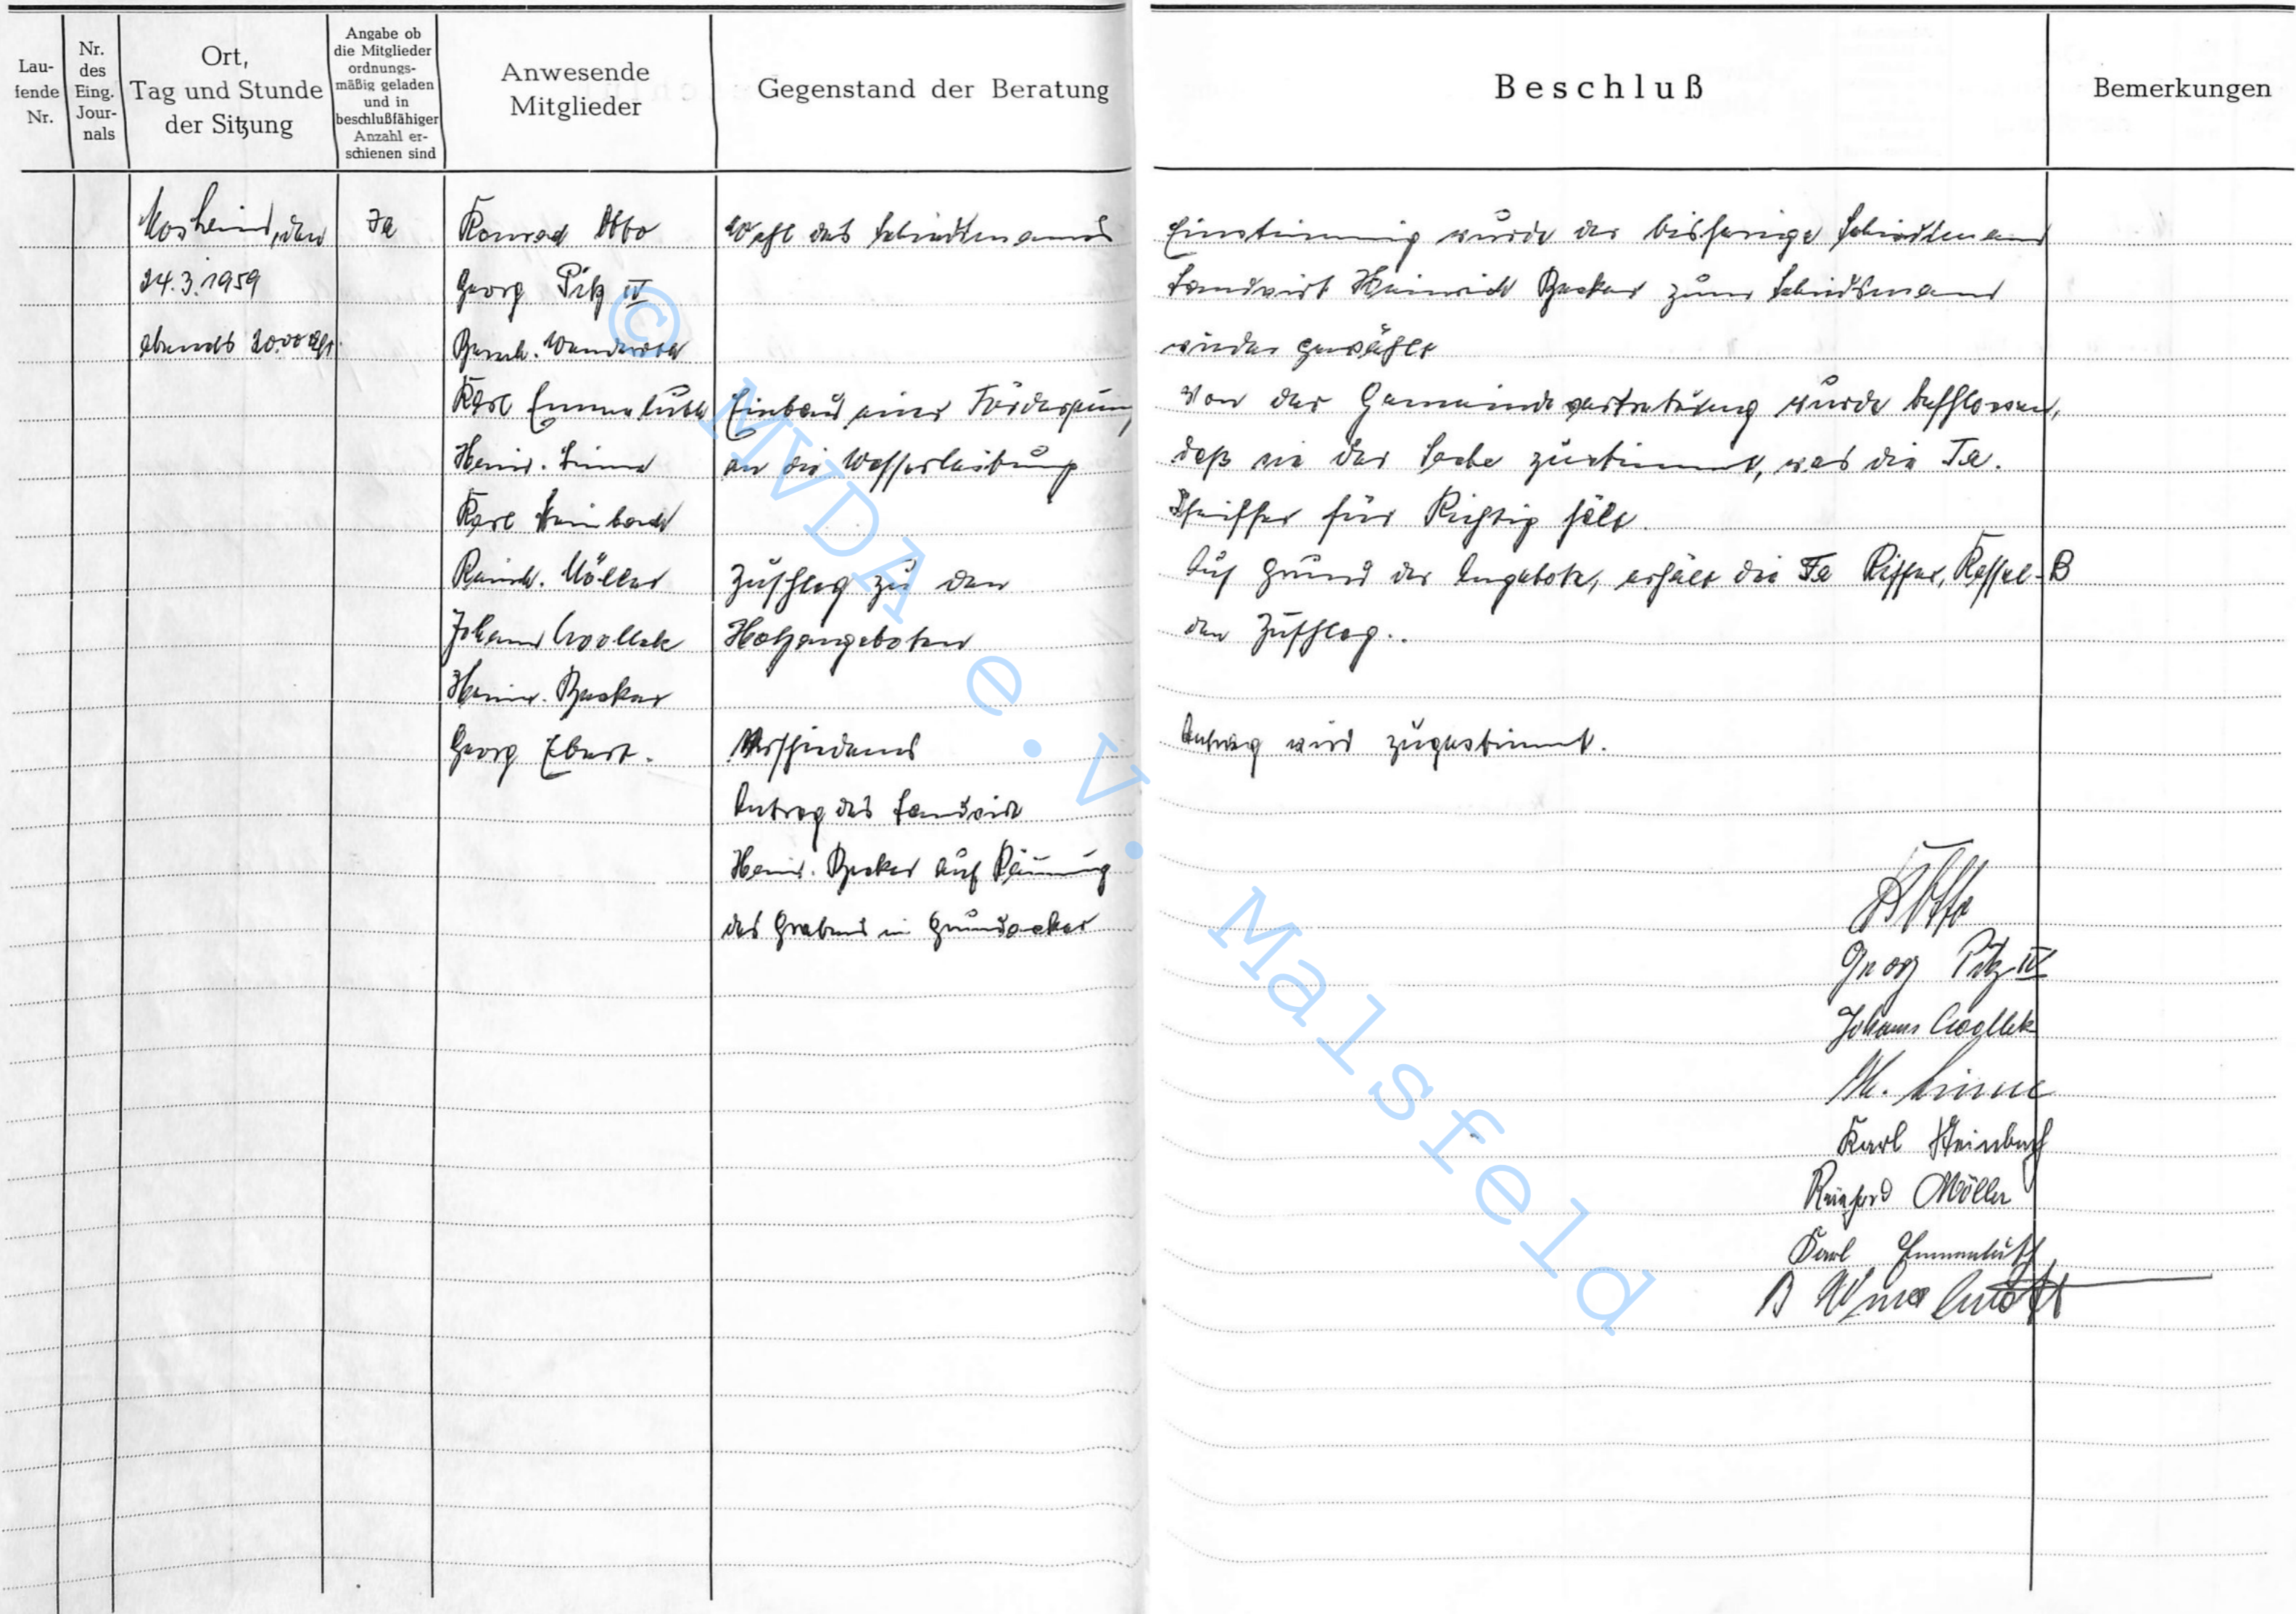 Lau-
fende
Nr.
Nr.
des
Eing.
Jour-
nals
Ort,
Tag und Stunde
der Sitzung
Angabe ob
die Mitglieder
ordnungs-
mäßig geladen
und in
beschlußfähiger
Anzahl er-
schienen sind
Anwesende
Mitglieder
Gegenstand der Beratung
Beschluß
Bemerkungen
Mosheim, den
24.3.1959
abends 20.00 Uhr
Ja
Konrad Otto
Georg Pitz IV
Bernh.
Karl Emmeluth
Heinr. Linne
Karl Steinbach
Reinh. Möller
Johann Woollek
Heinr. Becker
Georg Ebert.
Wahl des Schiedsmanns
Einbau einer Förderpump
an die Wasserleitung
Zuschlag zu den
Holzangeboten
Verschiedenes
Antrag des Landwirt
Heinr. Becker auf Räumung
des Grabens in Grundacker
Einstimmig wurde der bisherige Schiedsmann
Landwirt Heinrich Becker zum Schiedsmann
wieder gewählt
Von der Gemeindevertretung wurde beschlossen,
daß sie der Sache zustimmt, was die Fa.
Pfeiffer für Richtig hält.
Auf Grund der Angebote, erhält die Fa Kassel-B
den Zuschlag..
Antrag wird zugestimmt.
K Otto
Georg Pitz IV
Johann Woollek
H. Linne
Karl Steinbach
Reinhard Möller
Karl Emmeluth
© MVDA e.V. Malsfeld